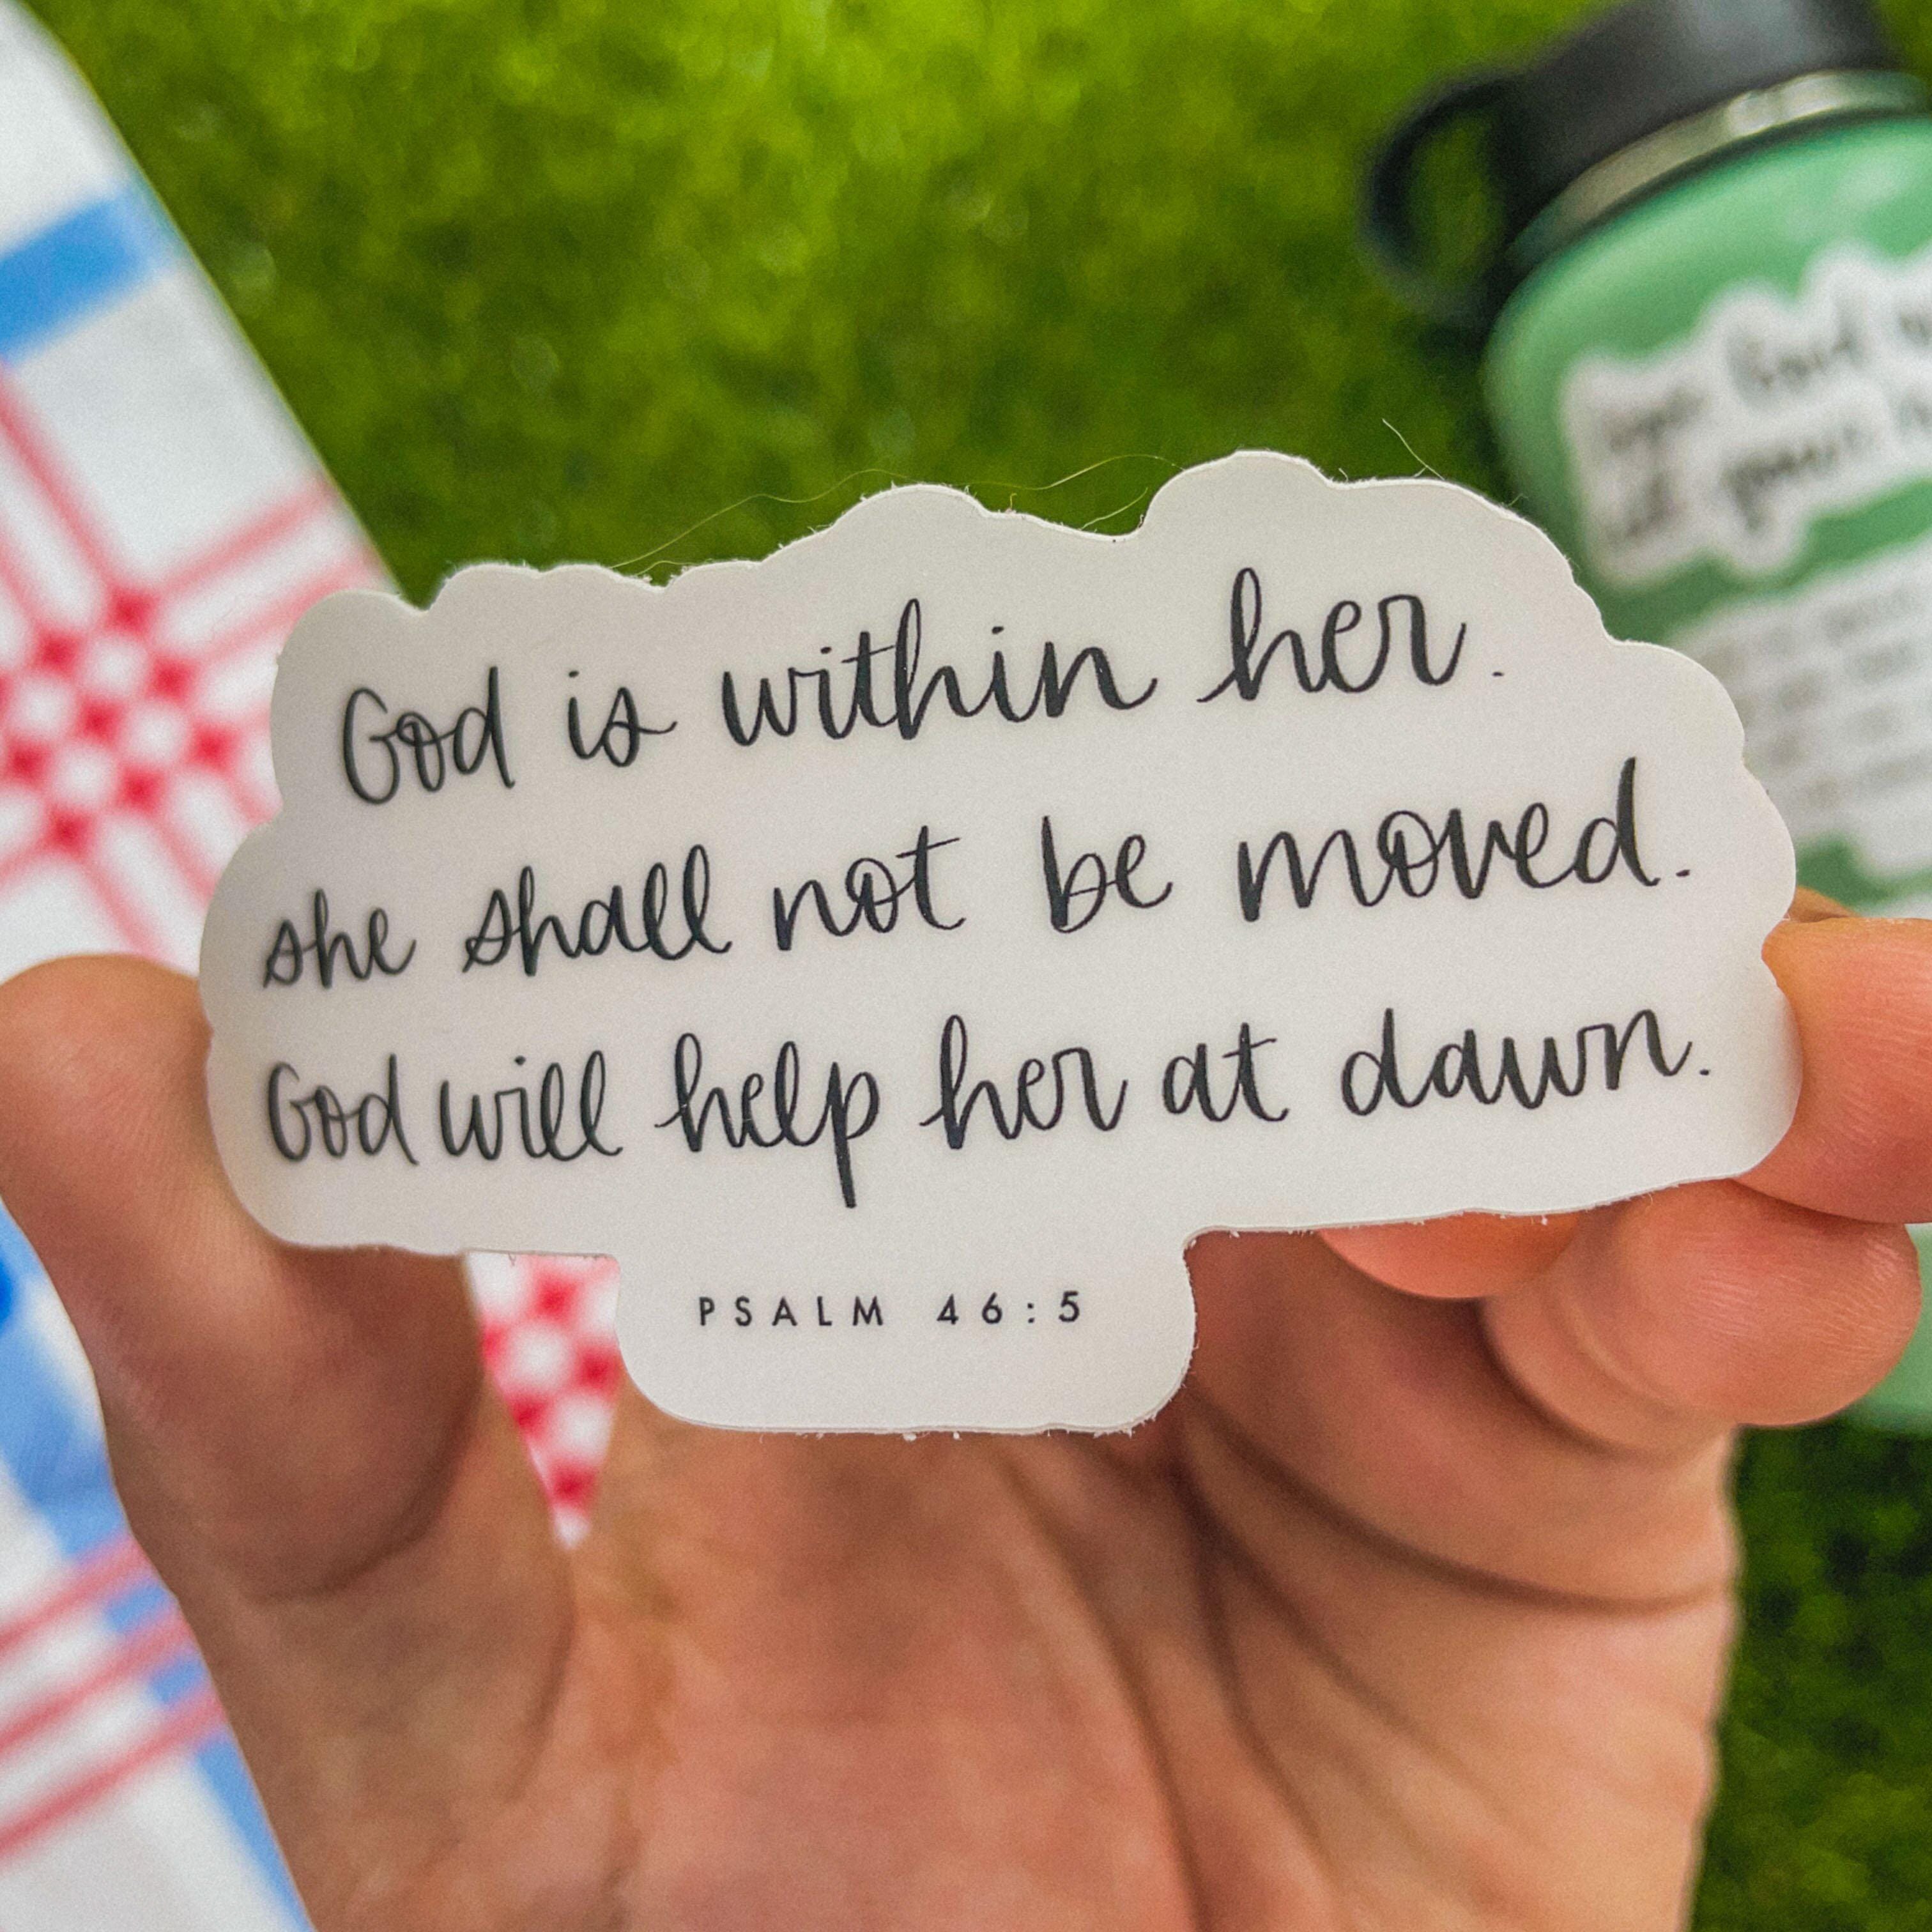 God is within her.
she shall not be moved.
God will help her at dawn.
PSALM 46:5